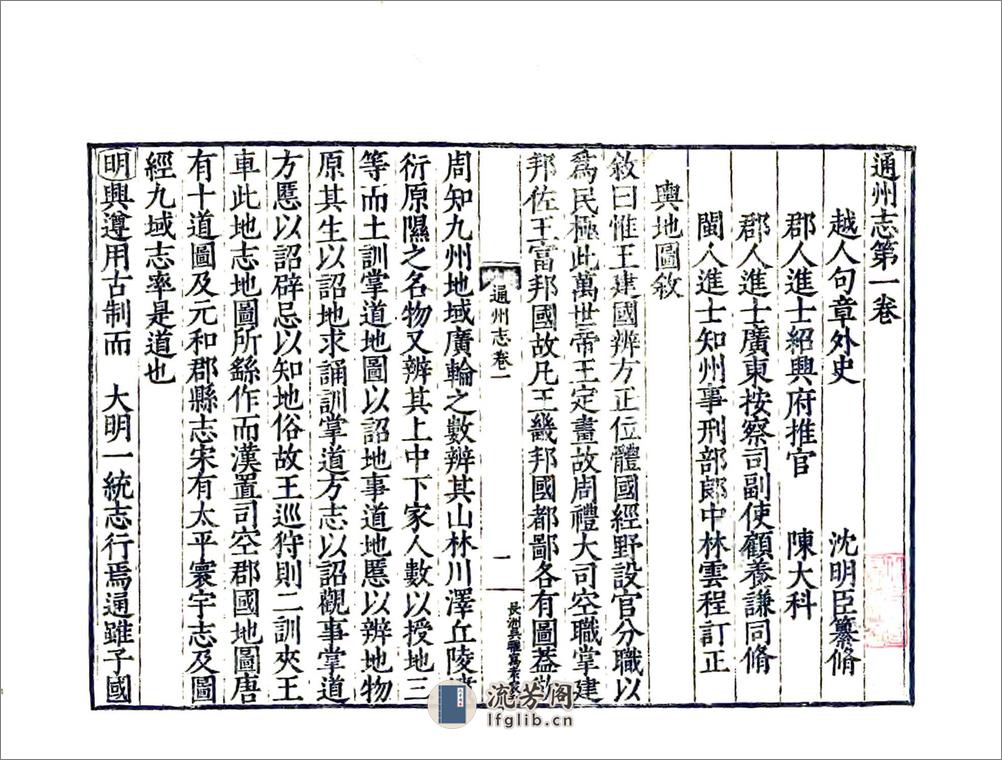 通州志第一卷
越人句章外史 沈明臣纂脩
郡人進士紹興府推官 陳大科
郡人進士廣東按察司副使顧養謙同脩
閩人進士知州事刑部郎中林雲程訂正
輿地圖敘
敘曰惟王建國辨方正位體國經野設官分職以
爲民極此萬世帝王定畫故周禮大司空職掌建
邦佐王富邦國故凡王畿邦國都鄙各有圖葢
通州志卷一
一
長洲吳
周知九州地域廣輪之數辨其山林川澤丘陵墳
衍原隰之名物又辨其上中下家人數以授地三
等而土訓掌道地圖以詔地事道地慝以辨地物
原其生以詔地求誦訓掌道方志以詔觀事掌道
方慝以詔辟忌以知地俗故王巡狩則二訓夾王
車此地志地圖所繇作而漢置司空郡國地圖唐
有十道圖及元和郡縣志宋有太平寰宇志及圖
經九域志率是道也
明興遵用古制而 大明一統志行焉通雖子國
流芳阁
lfglib.cn